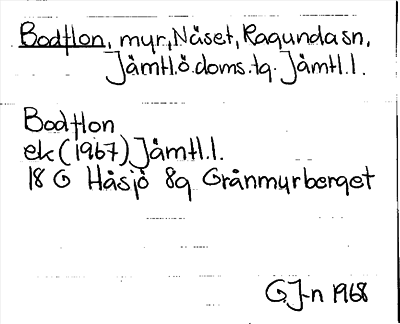 Bodflon, myr, Näset, Ragunda sn,
Jämtl.ö.doms.tg. Jämtl.l.
Bodflon
ek (1967) Jämtl.l.
18 G Håsjö 8g Grånmyrberget
GJ-n 1968